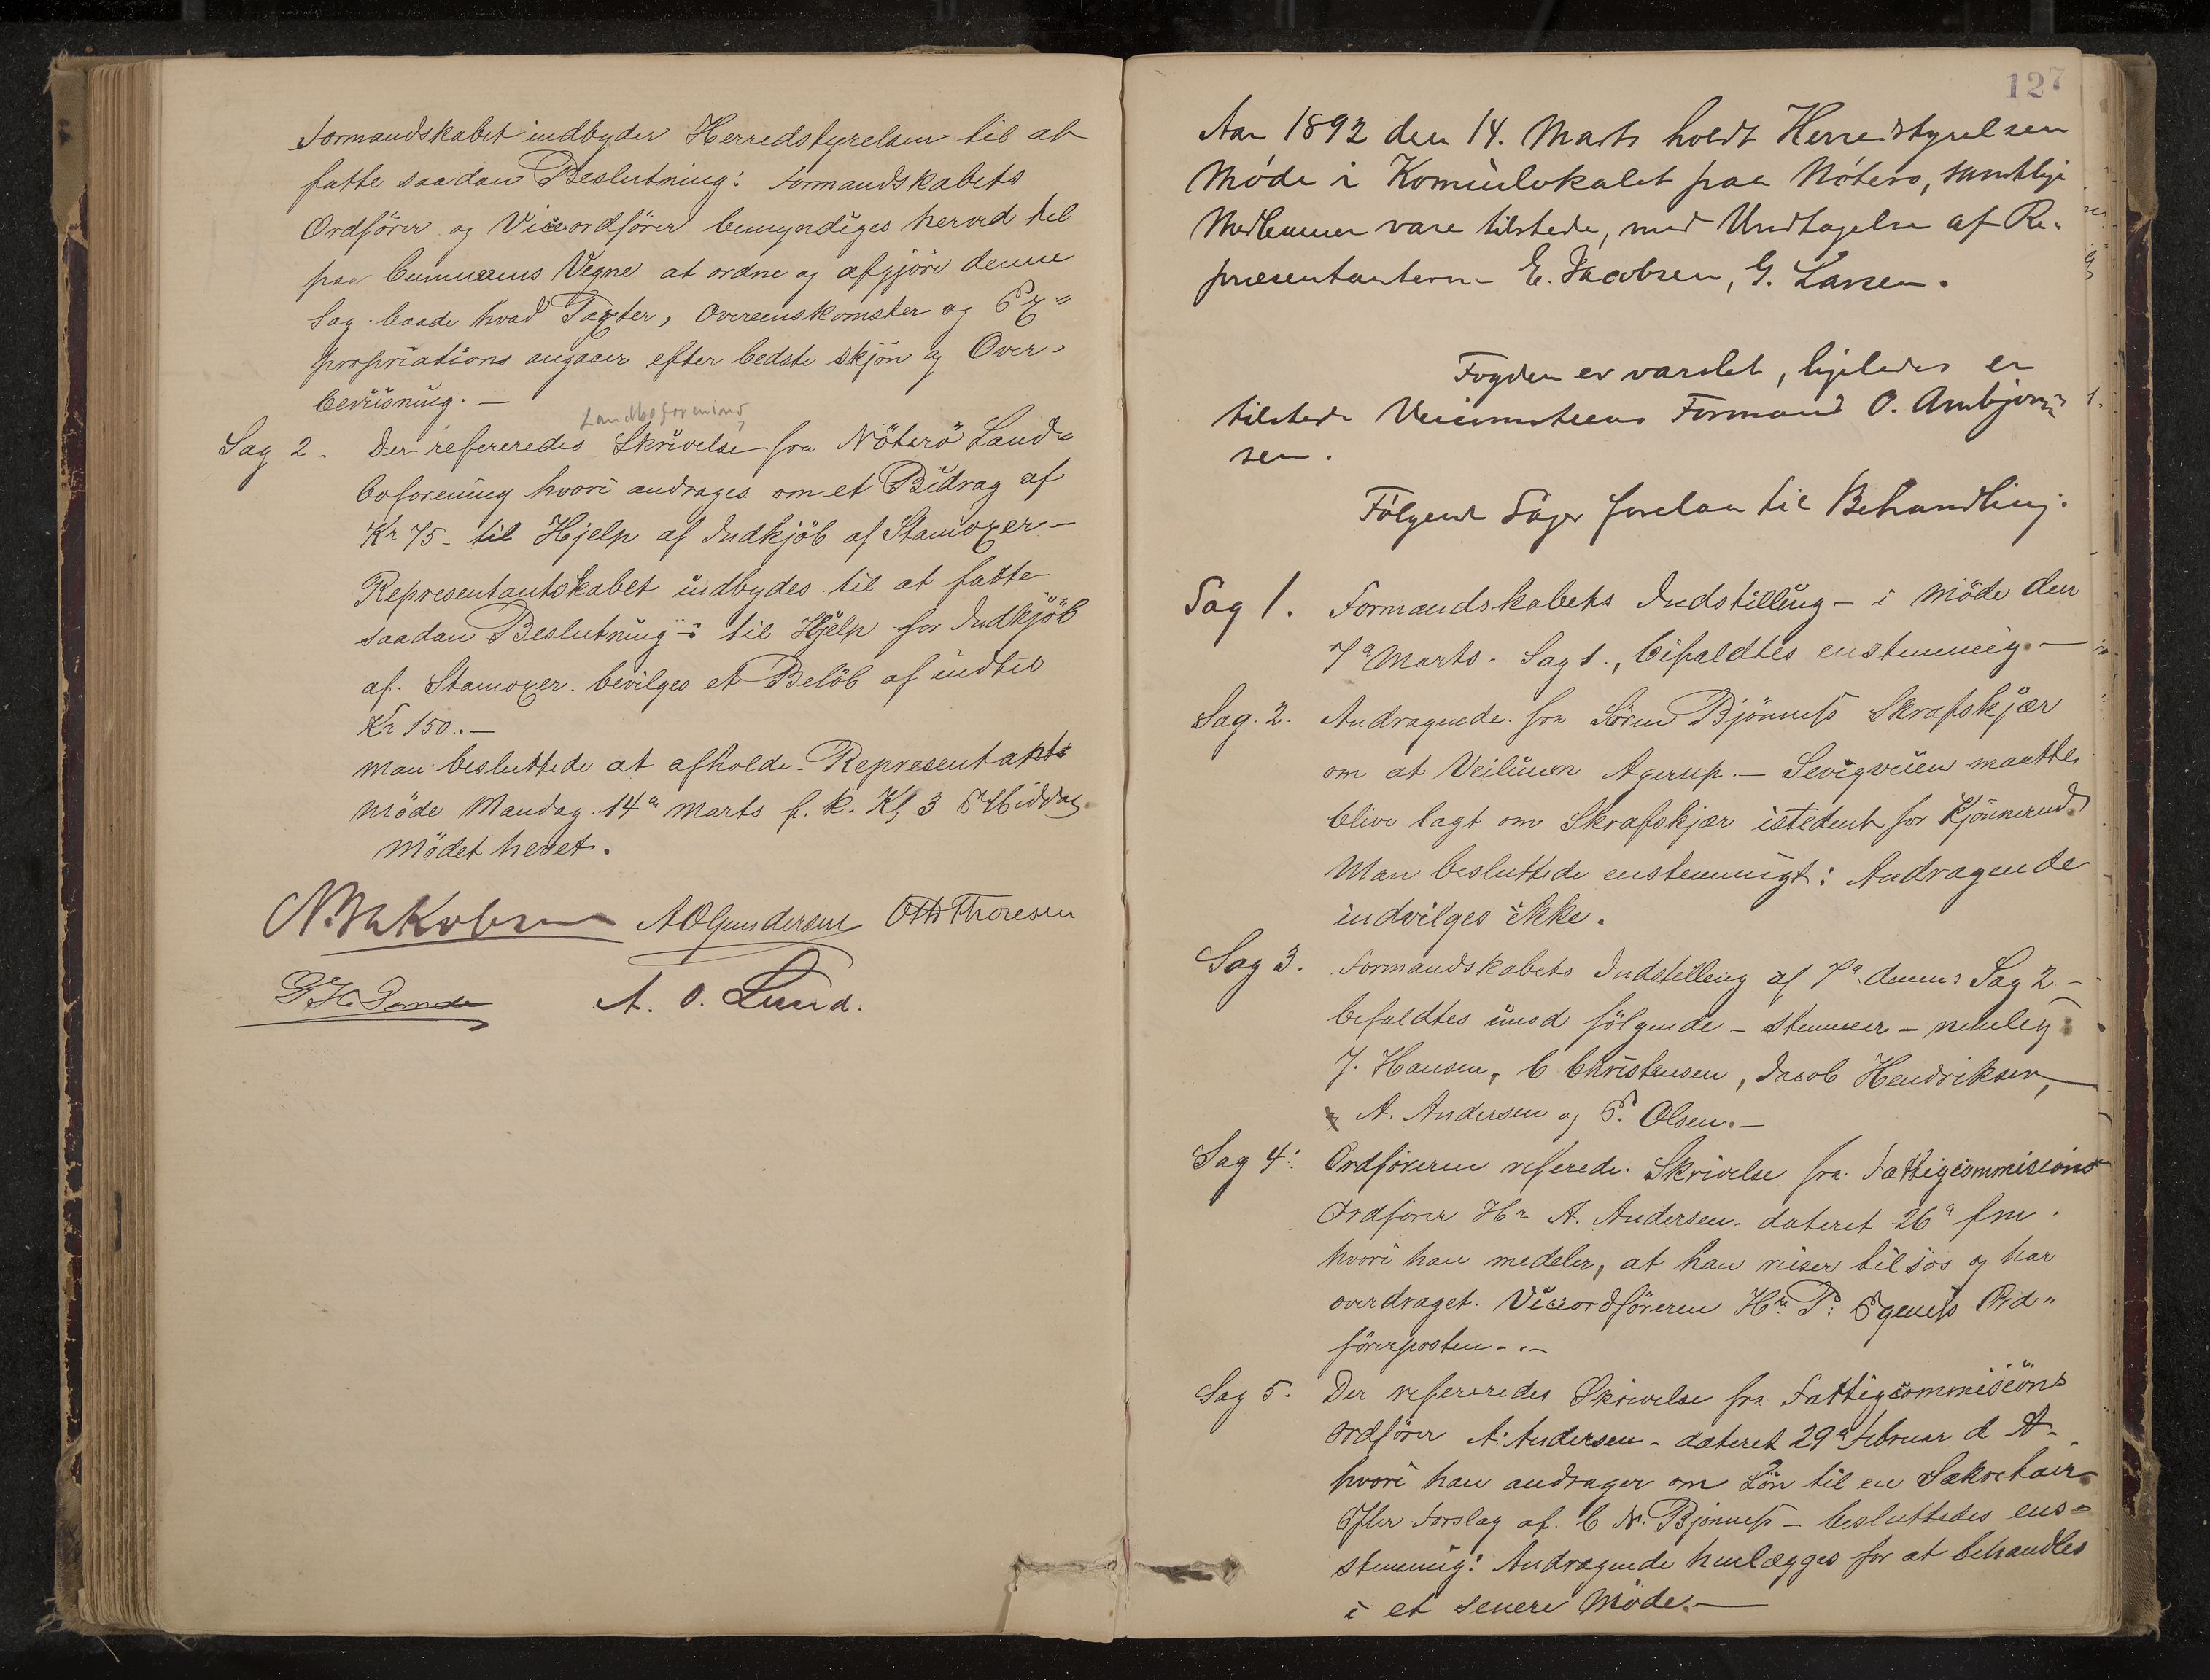 Formandskabet indbyder Herredstyrelsen til at
fatte saadan Beslutning: Formandskabets
Ordfører og Viceordfører bemyndiges herved til
paa Communens Vegne at ordne og afgjøre denne
Sag baade hvad Taxter, Overenskomster og Ex=
propriations angaaer efter bedste skjøn og Over=
beviisning. —
Landboforening
Sag 2 - Der refereredes Skrivelse fra Nøterø Land=
boforening hvori andrages om et Bidrag af
Kr 75 - til Hjelp af Indkjøb af Stamoxer —
Representantskabet indbydes til at fatte
saadan Beslutning: til Hjelp for Indkjøb
af Stamoxer bevilges et Beløb af indtil
Kr 150. —
Man besluttede at afholde Representants
møde Mandag 14de Marts f. k. Kl 3 Eftmiddag
Mødet hevet.
N. Jakobsen A O Gundersen Otto Thoresen
A. O. Lund.
127
Aar 1892 den 14. Marts holdt Herredstyrelsen
Møde i Komunelokalet paa Nøterø, samtlige
Medlemmer vare tilstede, med Undtagelse af Re-
præsentanterne E. Jacobsen, G. Larsen.
Fogden er varslet, ligeledes er
tilstede Veicomiteens Formand O. Ambjørn=
sen.
Følgende Sager forelaa til Behandling:
Sag 1. Formandskabets Indstilling - i Møde den
7de Marts. Sag 1., bifaldtes enstemmig. —
Sag. 2. Andragende fra Søren Bjønness Skrafskjær
om at Veilinien Agerup - Sevigveien maatte
blive lagt om Skrafskjær istedent for Kjønnerud.
Man besluttede enstemmigt: Andragende
indvilges ikke.
Sag 3. Formandskabets Indstilling af 7de dennes Sag 2 -
bifaldtes imod følgende - stemmer - nemlig
J. Hansen, C Christensen, Jacob Hendriksen,
A. Andersen og E. Olsen. —
Sag 4: Ordføreren referede Skrivelse fra Fattigcommisions
Ordfører Hr A. Andersen dateret 26de fm.
hvori han medeler, at han reiser tilsjøs og har
overdraget Viceordføreren Hr. P. Egeness Ord=
førerposten. —
Sag 5. Der refereredes Skrivelse fra Fattigcommisions
Ordfører A. Andersen - dateret 29de Februar d A -
hvori han andrager om Løn til en Sekretair
Efter Forslag af C N. Bjønness - besluttedes ens=
stemmig: Andragende henlægges for at behandles
i et senere Møde. —